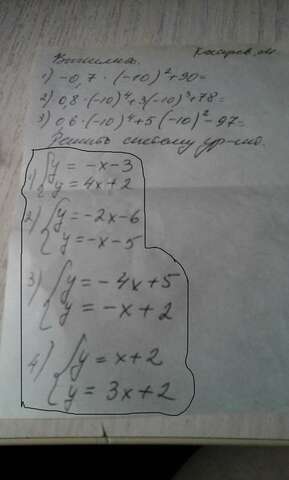 Вычислить.
1) -0,7 · (-10)² + 90 =
2) 0,8 · (-10)⁴ + 3(-10)³ + 78 =
3) 0,6 · (-10)⁴ + 5(-10)² - 97 =
Решить систему ур-ний.
1) { y = -x - 3
y = 4x + 2
2) { y = -2x - 6
y = -x - 5
3) { y = -4x + 5
y = -x + 2
4) { y = x + 2
y = 3x + 2